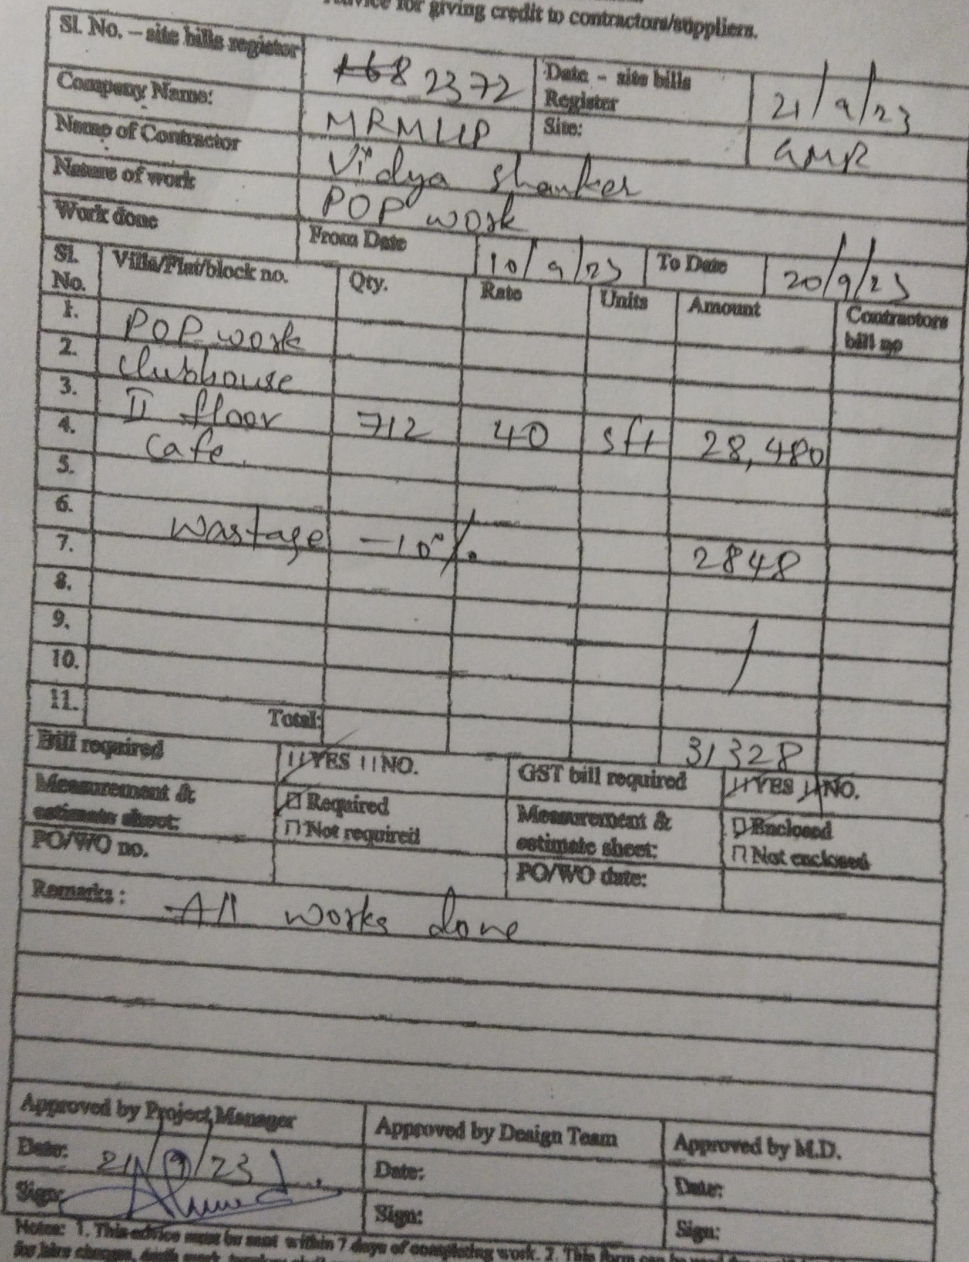 Advice for giving credit to contractors/suppliers.
Sl. No. – site bills register 2372 Date – site bills Register 21/9/23
Company Name: MRMLLP Site: GMR
Name of Contractor Vidya Shanker
Nature of work POP work
Work done From Date 10/9/23 To Date 20/9/23
Sl. No. Villa/Flat/block no. Qty. Rate Units Amount Contractors bill no
1. POP work
2. Clubhouse
3. II floor
4. Cafe 712 40 sft 28,480
5.
6.
7. Wastage -10% 2848
8.
9.
10.
11.
Total: 31328
Bill required YES NO. GST bill required YES NO.
Measurement & estimate sheet: Required Not required Measurement & estimate sheet: Enclosed Not enclosed
PO/WO no. PO/WO date:
Remarks : All works done
Approved by Project Manager Approved by Design Team Approved by M.D.
Date: 21/9/23 Date: Date:
Sign: Sign: Sign:
Notes: 1. This advice must be sent within 7 days of completing work. 2. This form can be used
for hire charges, earth work,